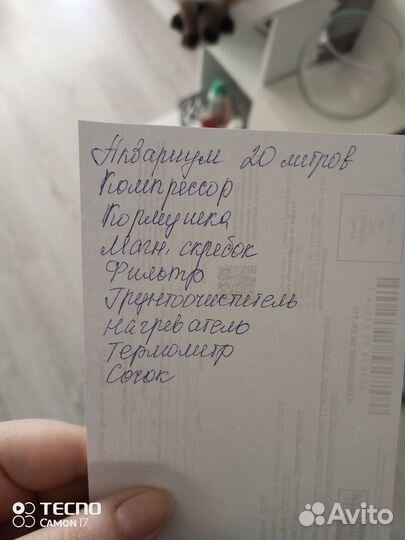 Аквариум 20 литров
Компрессор
Кормушка
Магн. скребок
Фильтр
Грунтоочиститель
нагреватель
Термометр
Сачок
TECNO
CAMON 17
Avito